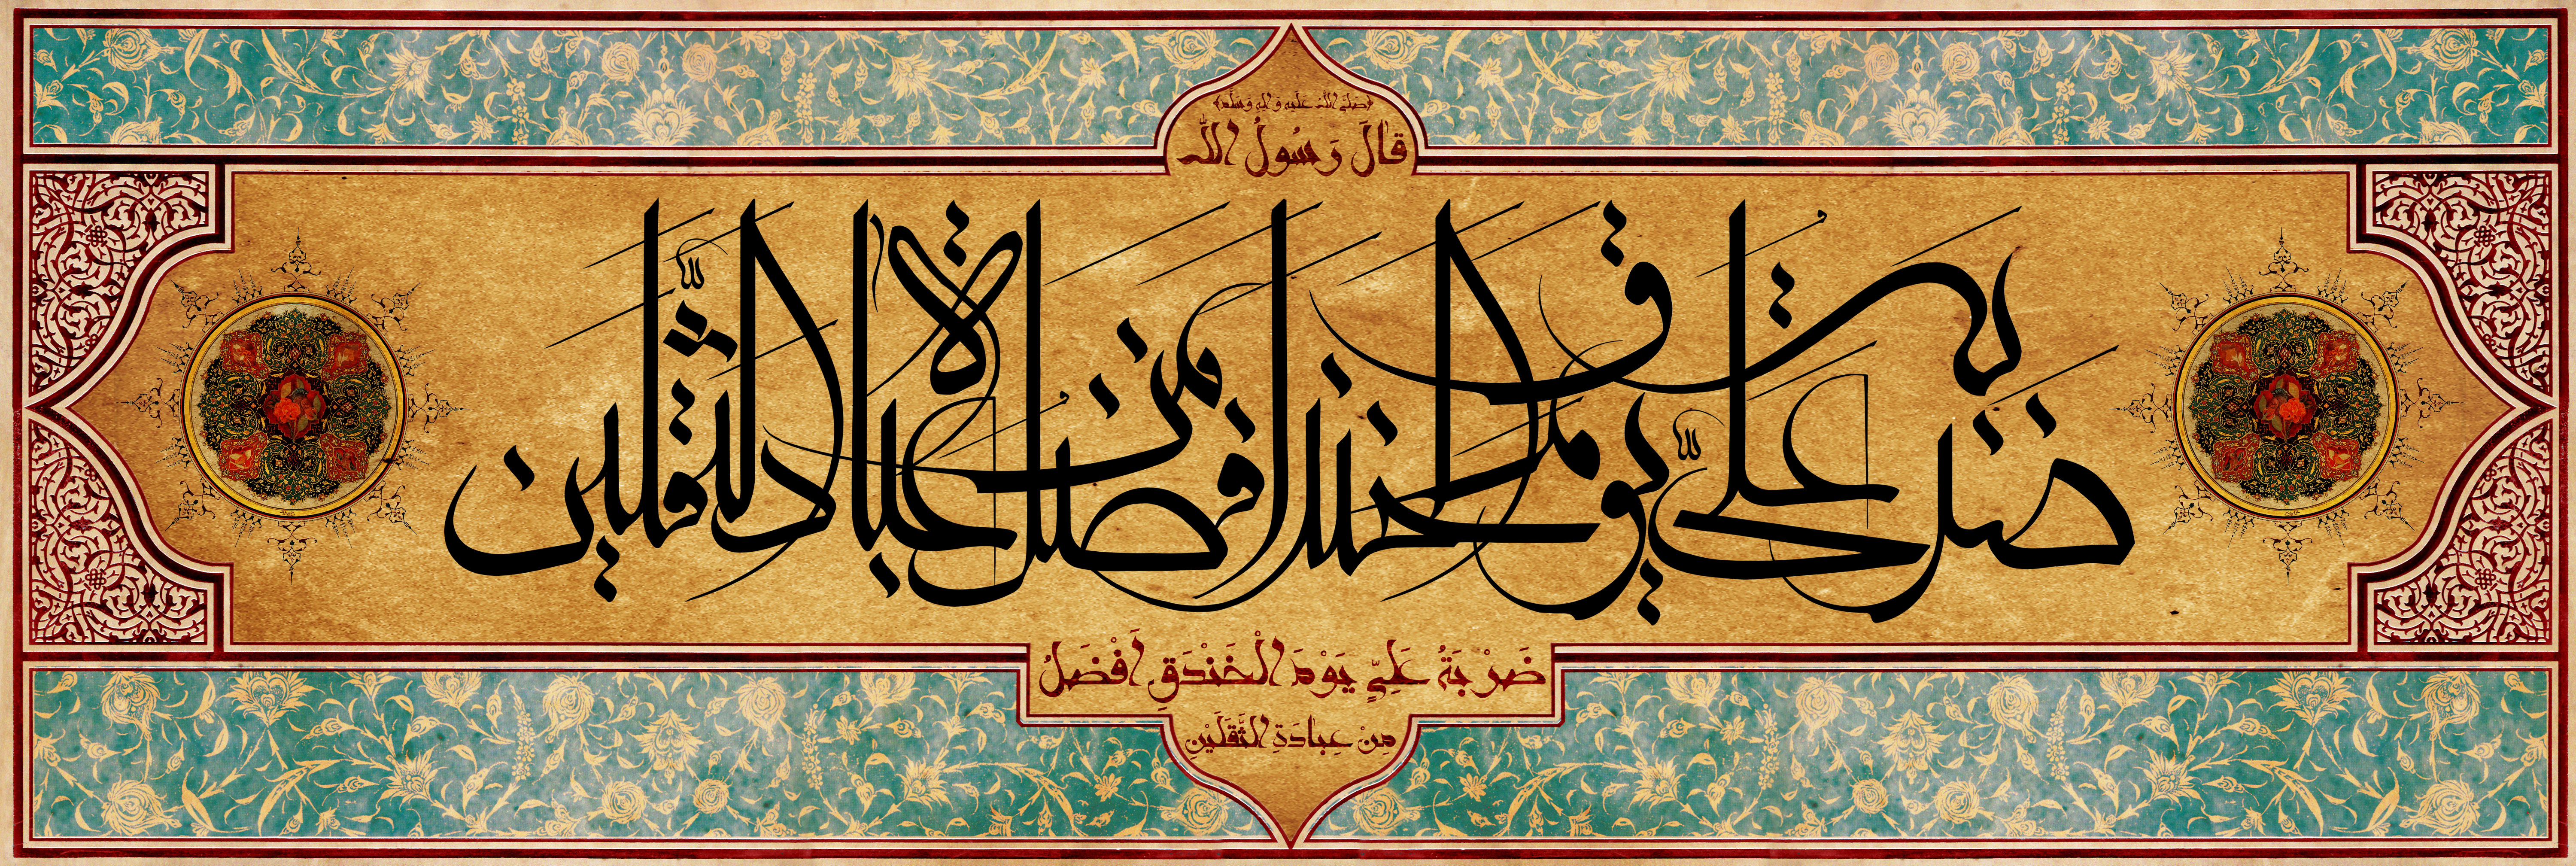 ﴿صَلَّىَ اللّٰهُ عَلَيْهِ وَ الِهِ وَ سَلَّمَ﴾
قٰالَ رَسُولُ اللّٰه
ضربة علیّ یوم الخندق افضل من عبادة الثقلین
ضَرْبَةُ عَلِيٍّ يَوْمَ الْخَنْدَقِ اَفْضَلُ
مِنْ عِبٰادَةِ الثَّقَلَيْنِ